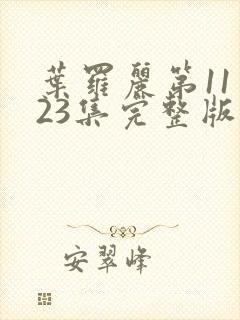 葉羅麗第11
23集完整版
安翠峰